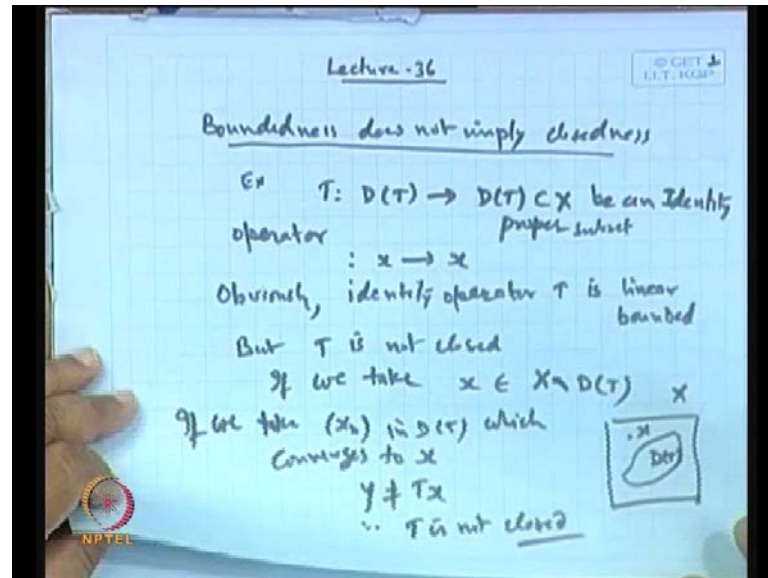 Lecture-36
© CET
I.I.T. KGP
Boundedness does not imply closedness
Ex T: D(T) → D(T) ⊂ X be an Identity
operator proper subset
: x → x
Obviously, identity operator T is linear
bounded
But T is not closed
If we take x ∈ X \ D(T) X
If we take (xn) in D(T) which
converges to x
.x
D(T)
y ≠ Tx
∴ T is not closed
NPTEL